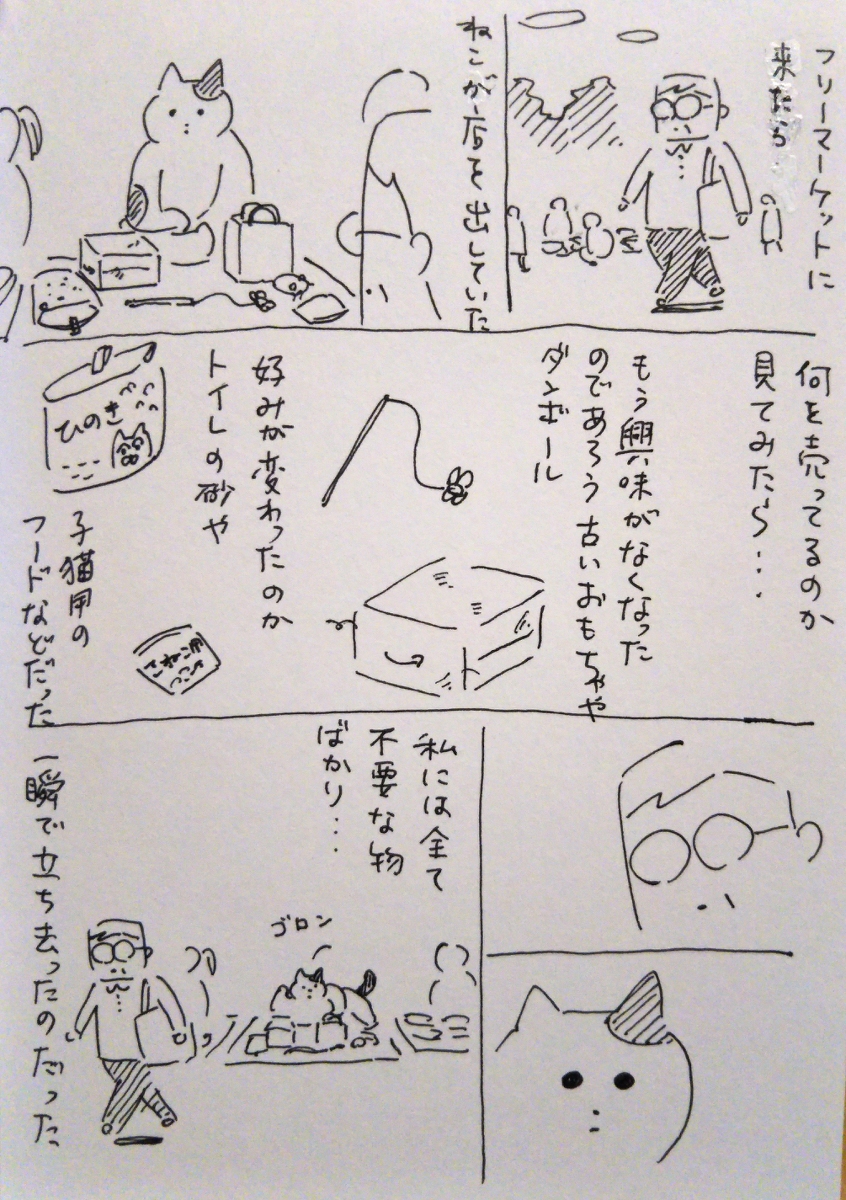 フリーマーケットに
来たら
ねこが店を出していた
何を売ってるのか
見てみたら・・・
もう興味がなくなった
のであろう古いおもちゃや
ダンボール
好みが変わったのか
トイレの砂や
ひのき
子猫用の
フードなどだった
こねこ用
私には全て
不要な物
ばかり・・・
ゴロン
一瞬で立ち去ったのだった